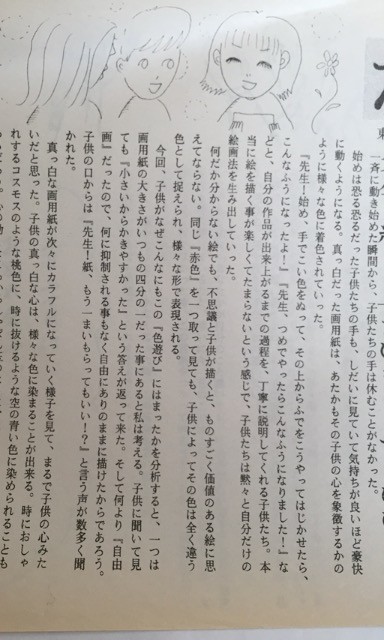 一斉に動き始めた瞬間から、子供たちの手は休むことがなかった。
始めは恐る恐るだった子供たちの手も、しだいに見ていて気持ちが良いほど豪快
に動くようになる。真っ白だった画用紙は、あたかもその子供の心を象徴するかの
ように様々な色に着色されていった。
『先生！始め、手でこい色をぬって、その上からふでをこうやってはじかせたら、
こんなふうになったよ！』『先生、つめでやったらこんなふうになりました！』な
どと、自分の作品が出来上がるまでの過程を、丁寧に説明してくれる子供たち。本
当に絵を描く事が楽しくてたまらないという感じで、子供たちは黙々と自分だけの
絵画法を生み出していった。
何だか分からない絵でも、不思議と子供が描くと、ものすごく価値のある絵に思
えてならない。同じ『赤色』を一つ取って見ても、子供によってその色は全く違う
色として捉えられ、様々な形で表現される。
今回、子供がなぜこんなにもこの『色遊び』にはまったかを分析すると、一つは
画用紙の大きさがいつもの四分の一だった事にあると私は考える。子供に聞いて見
ても『小さいからかきやすかった』という答えが返って来た。そして何より『自由
画』だったので、何に抑制される事もなく自由にありのままに描けたからであろう。
子供の口からは『先生！紙、もう一まいもらってもいい！？』と言う声が数多く聞
かれた。
真っ白な画用紙が次々にカラフルになっていく様子を見て、まるで子供の心みた
いだと思った。子供の真っ白な心は、様々な色に染まることが出来る。時におしゃ
れするコスモスのような桃色に、時に抜けるような空の青い色に染められることも